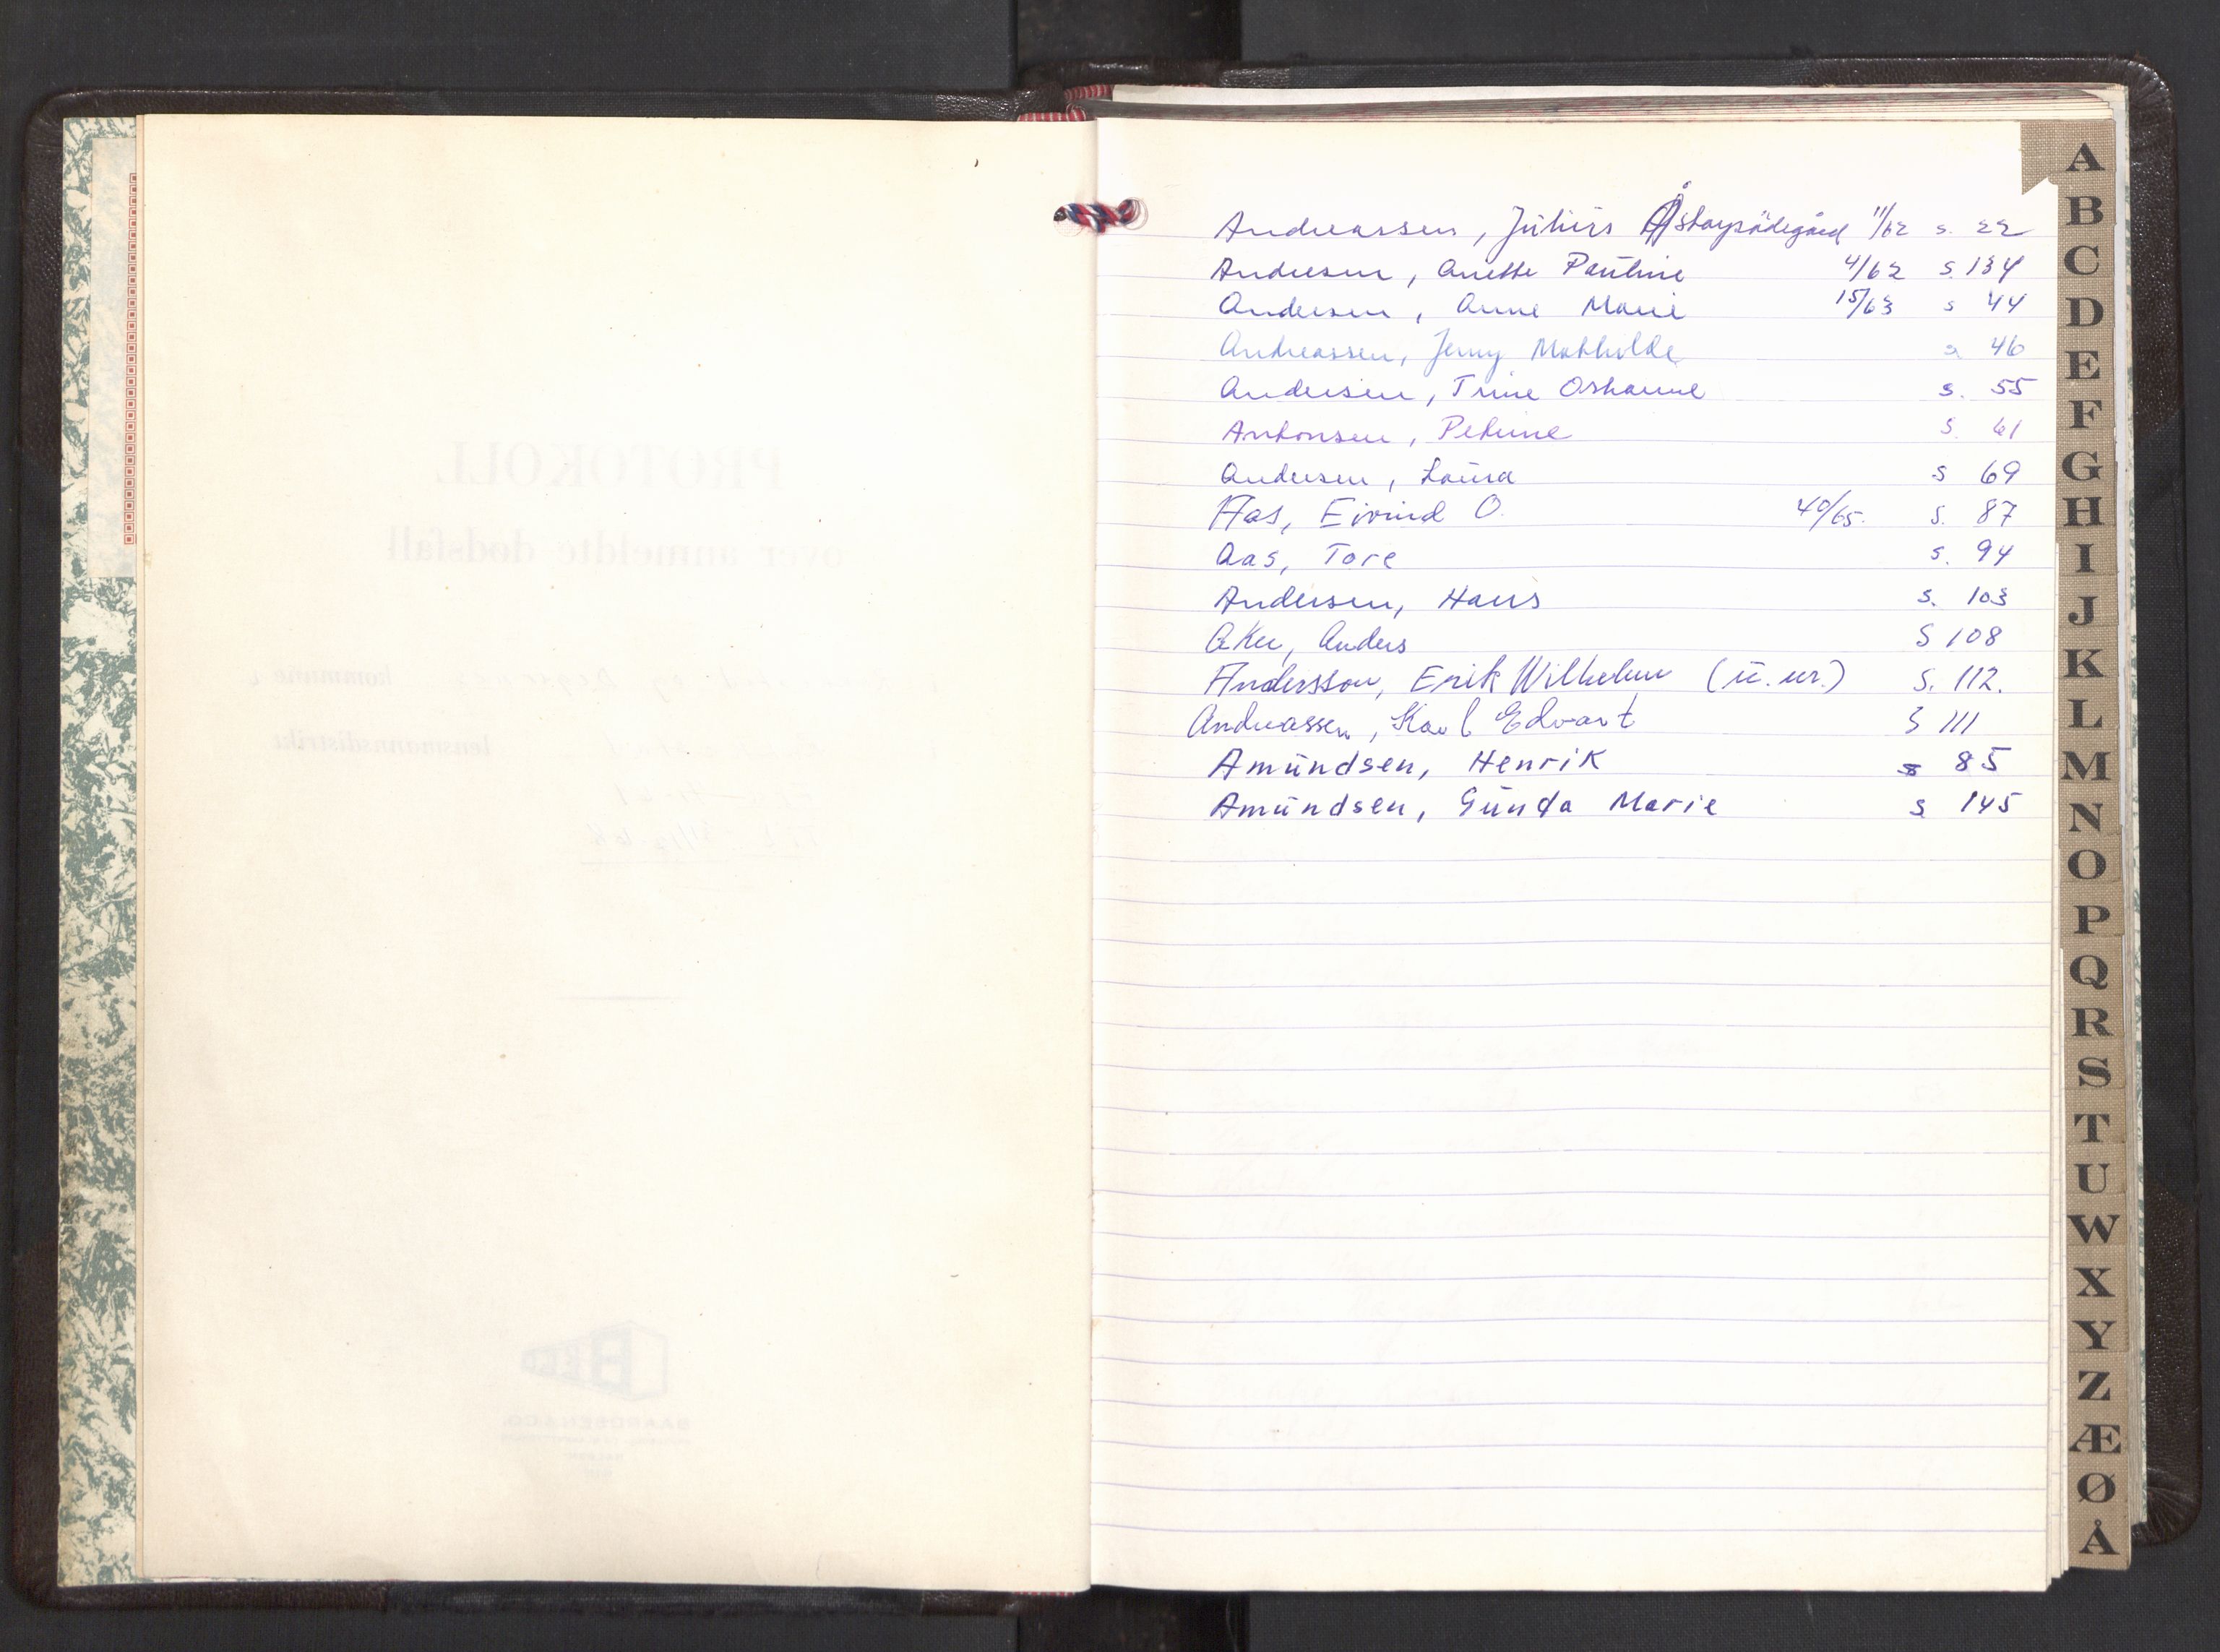 PROTOKOLL
over anmeldte dødsfall
kommune
lensmannsdistrikt
Andreassen, Julius Åstorpødegård 11/62 s. 22
Andresen, Anette Pauline 4/62 s. 134
Andersen, Anne Marie 15/63 s 44
Andreassen, Jenny Mathilde s 46
Andersen, Trine Oshanne s. 55
Antonsen, Petrine s. 61
Andersen, Laura s 69
Aas, Eivind O. 40/65. s. 87
Aas, Tore s. 94
Andersen, Hans s. 103
Aker, Anders S 108
Andersson, Erik Wilhelm (u. nr.) s. 112.
Andreassen, Karl Edvart S 111
Amundsen, Henrik s 85
Amundsen, Gunda Marie s 145
A
B
C
D
E
F
G
H
I
J
K
L
M
N
O
P
Q
R
S
T
U
W
X
Y
Z
Æ
Ø
Å